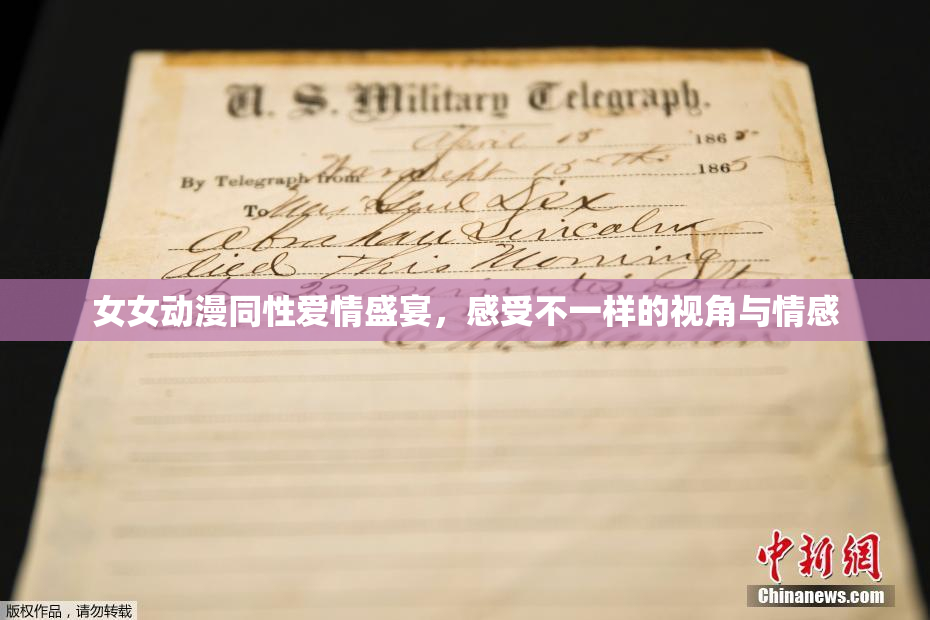 U. S. Military Telegraph.
April 15 1865
By Telegraph from War Dept 15th 1865
To Maj Genl Dix
Abraham Lincoln
died This Morning
at 22 minutes after
女女动漫同性爱情盛宴，感受不一样的视角与情感
E. M. Stanton
中新网
Chinanews.com
版权作品，请勿转载